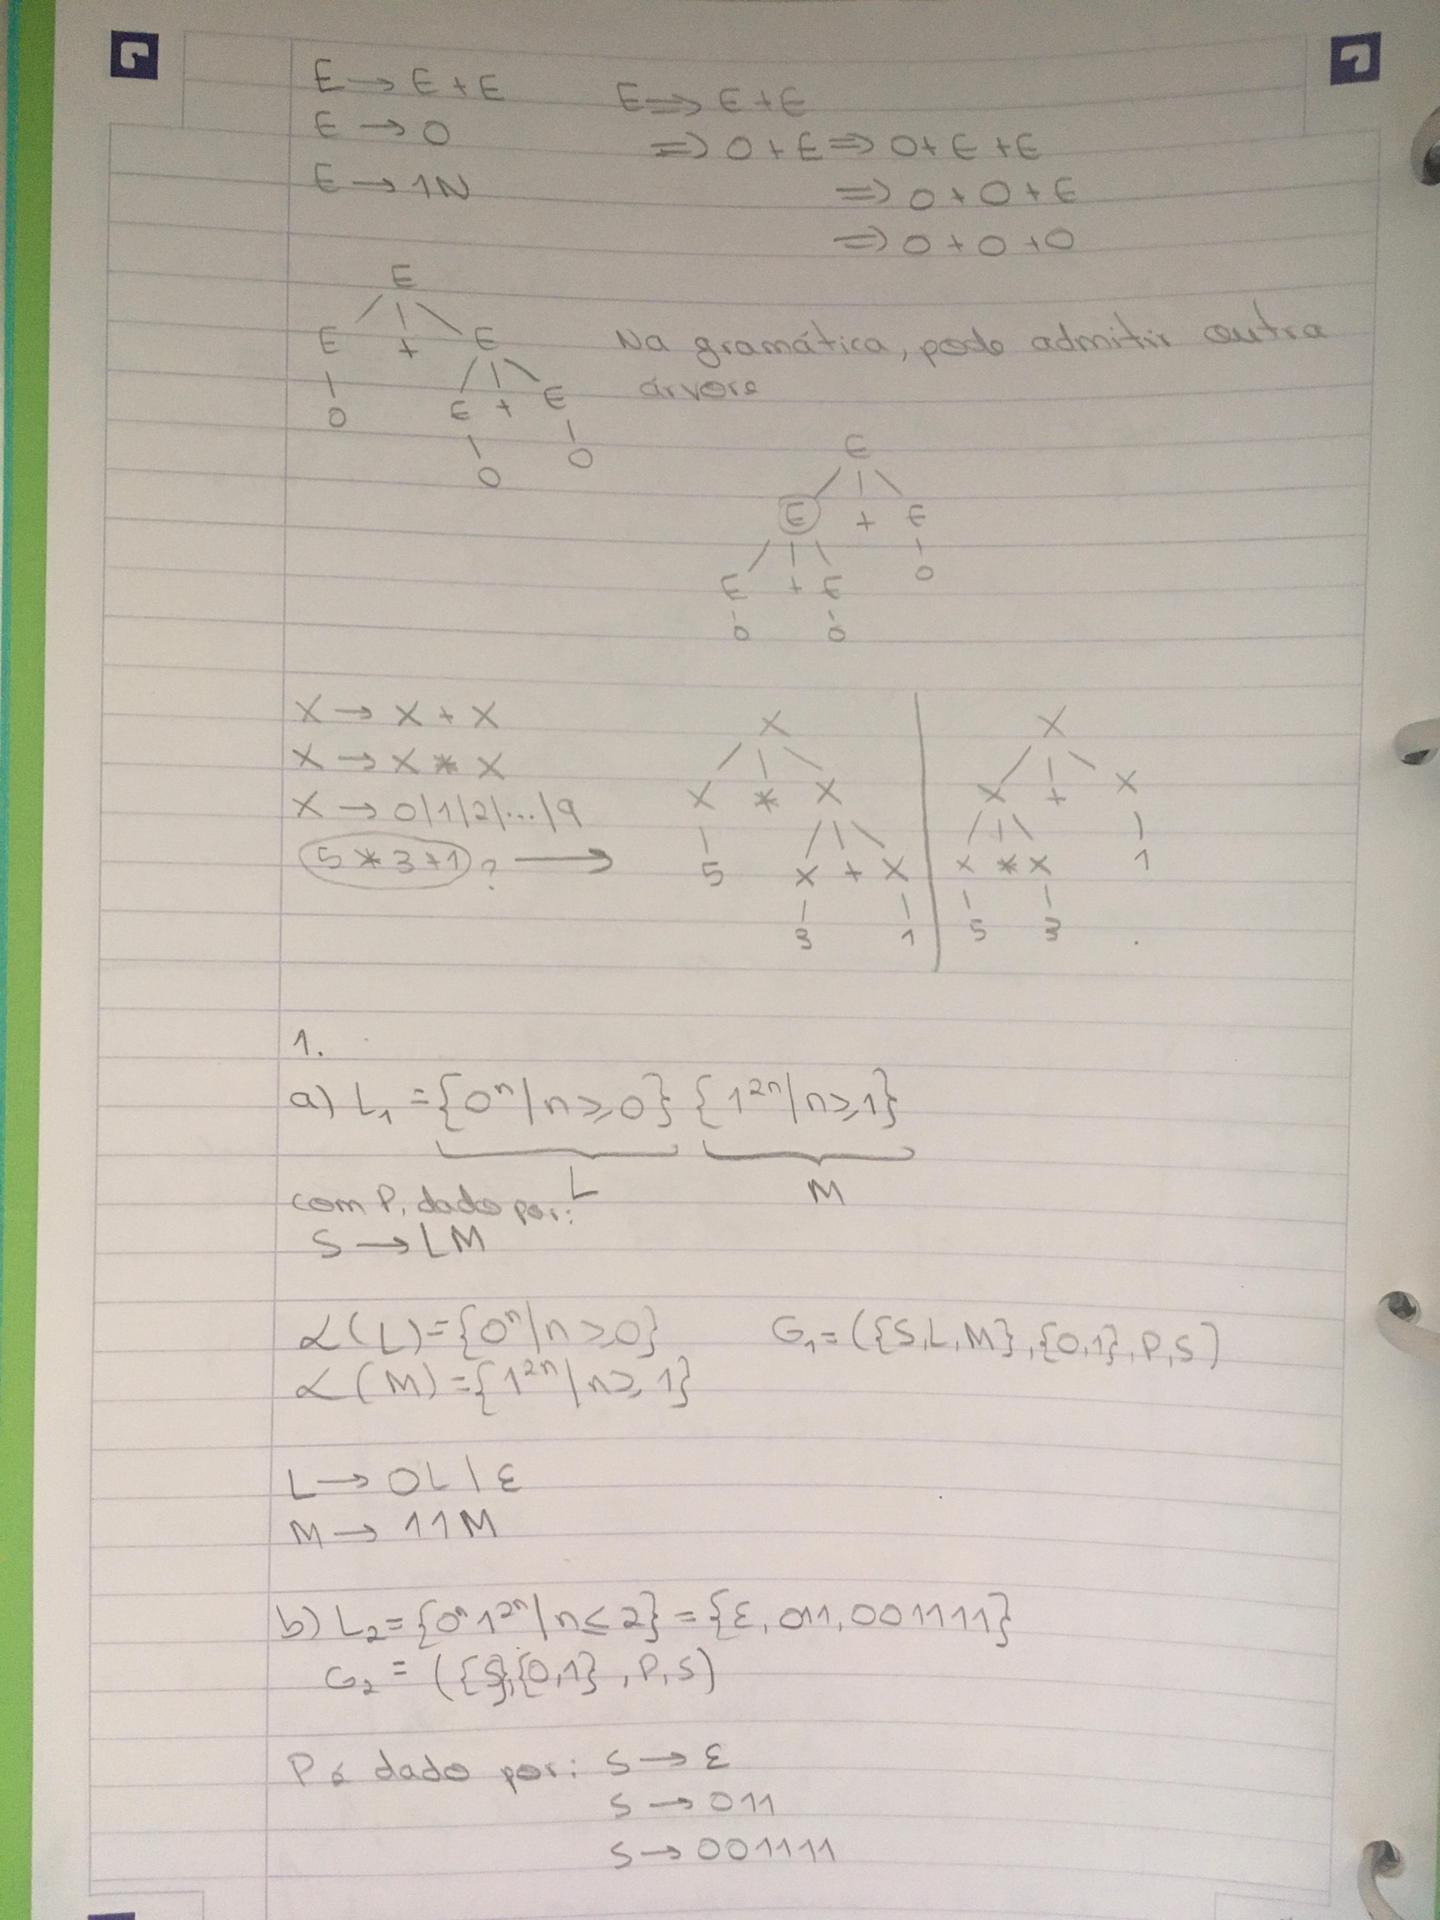 E → E + E
E → 0
E → 1N
E ⇒ E + E
⇒ 0 + E ⇒ 0 + E + E
⇒ 0 + 0 + E
⇒ 0 + 0 + 0
E
E + E
0 E + E
0 0
Na gramática, pode admitir outra
árvore
E
E + E
E + E 0
0 0
X → X + X
X → X * X
X → 0|1|2|...|9
5 * 3 + 1 ? →
X
X * X
5 X + X
3 1
X
X + X
X * X 1
5 3
1.
a) L₁ = {0ⁿ | n ≥ 0} {1²ⁿ | n ≥ 1}
L M
com P, dado por:
S → LM
ℒ(L) = {0ⁿ | n ≥ 0}
ℒ(M) = {1²ⁿ | n ≥ 1}
G₁ = ({S, L, M}, {0,1}, P, S)
L → 0L | ε
M → 11M
b) L₂ = {0ⁿ1²ⁿ | n ≤ 2} = {ε, 011, 001111}
G₂ = ({S}, {0,1}, P, S)
P é dado por: S → ε
S → 011
S → 001111